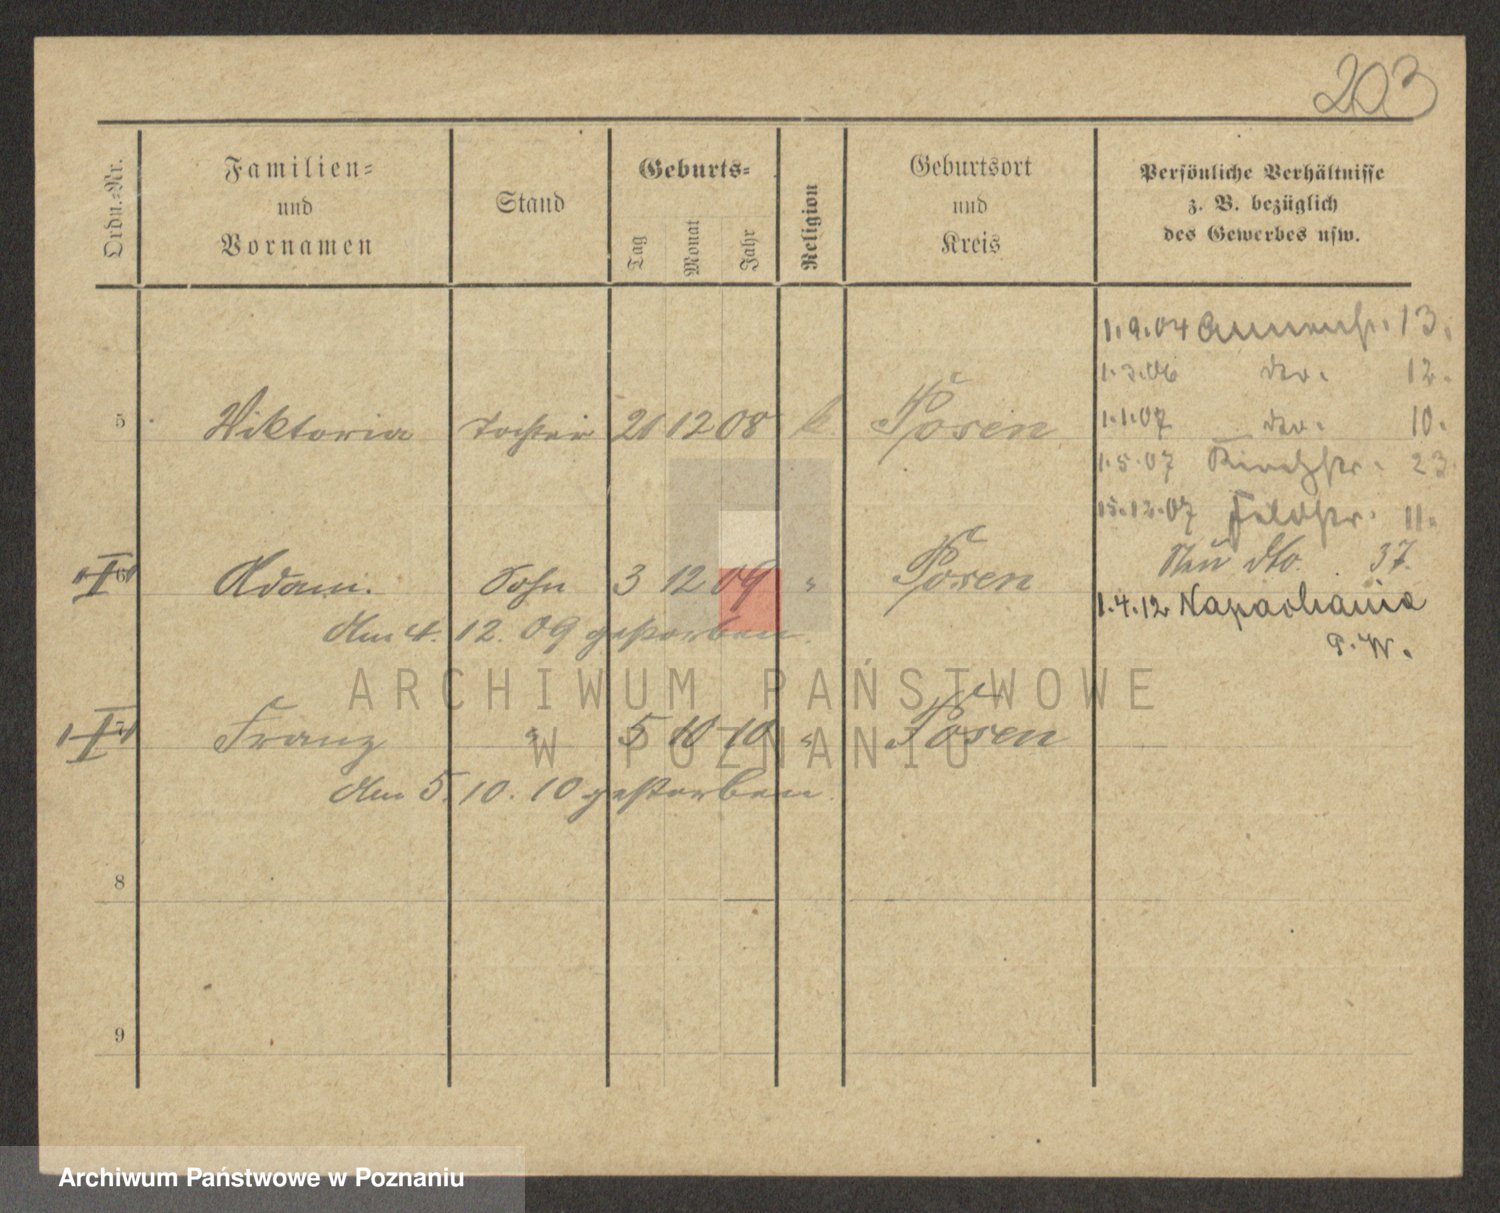 203
Ordn.=Nr.
Familien=
und
Vornamen
Stand
Geburts=
Tag
Monat
Jahr
Religion
Geburtsort
und
Kreis
Persönliche Verhältnisse
z. B. bezüglich
des Gewerbes usw.
1.9.04 Annenstr. 13.
1.3.06 do. 12.
5 Wiktoria Tochter 21 12 08 k Posen
1.1.07 do. 10.
1.5.07 Kirchstr. 23
15.12.07 Feldstr. 11.
dto. 37.
6 Adam. Sohn 3 12 09 " Posen
1.4.12 Napachanie
P.W.
Am 4. 12. 09 gestorben.
7 Franz " 5 10 10 " Posen
Am 5. 10. 10 gestorben.
8
9
ARCHIWUM PAŃSTWOWE
W POZNANIU
Archiwum Państwowe w Poznaniu